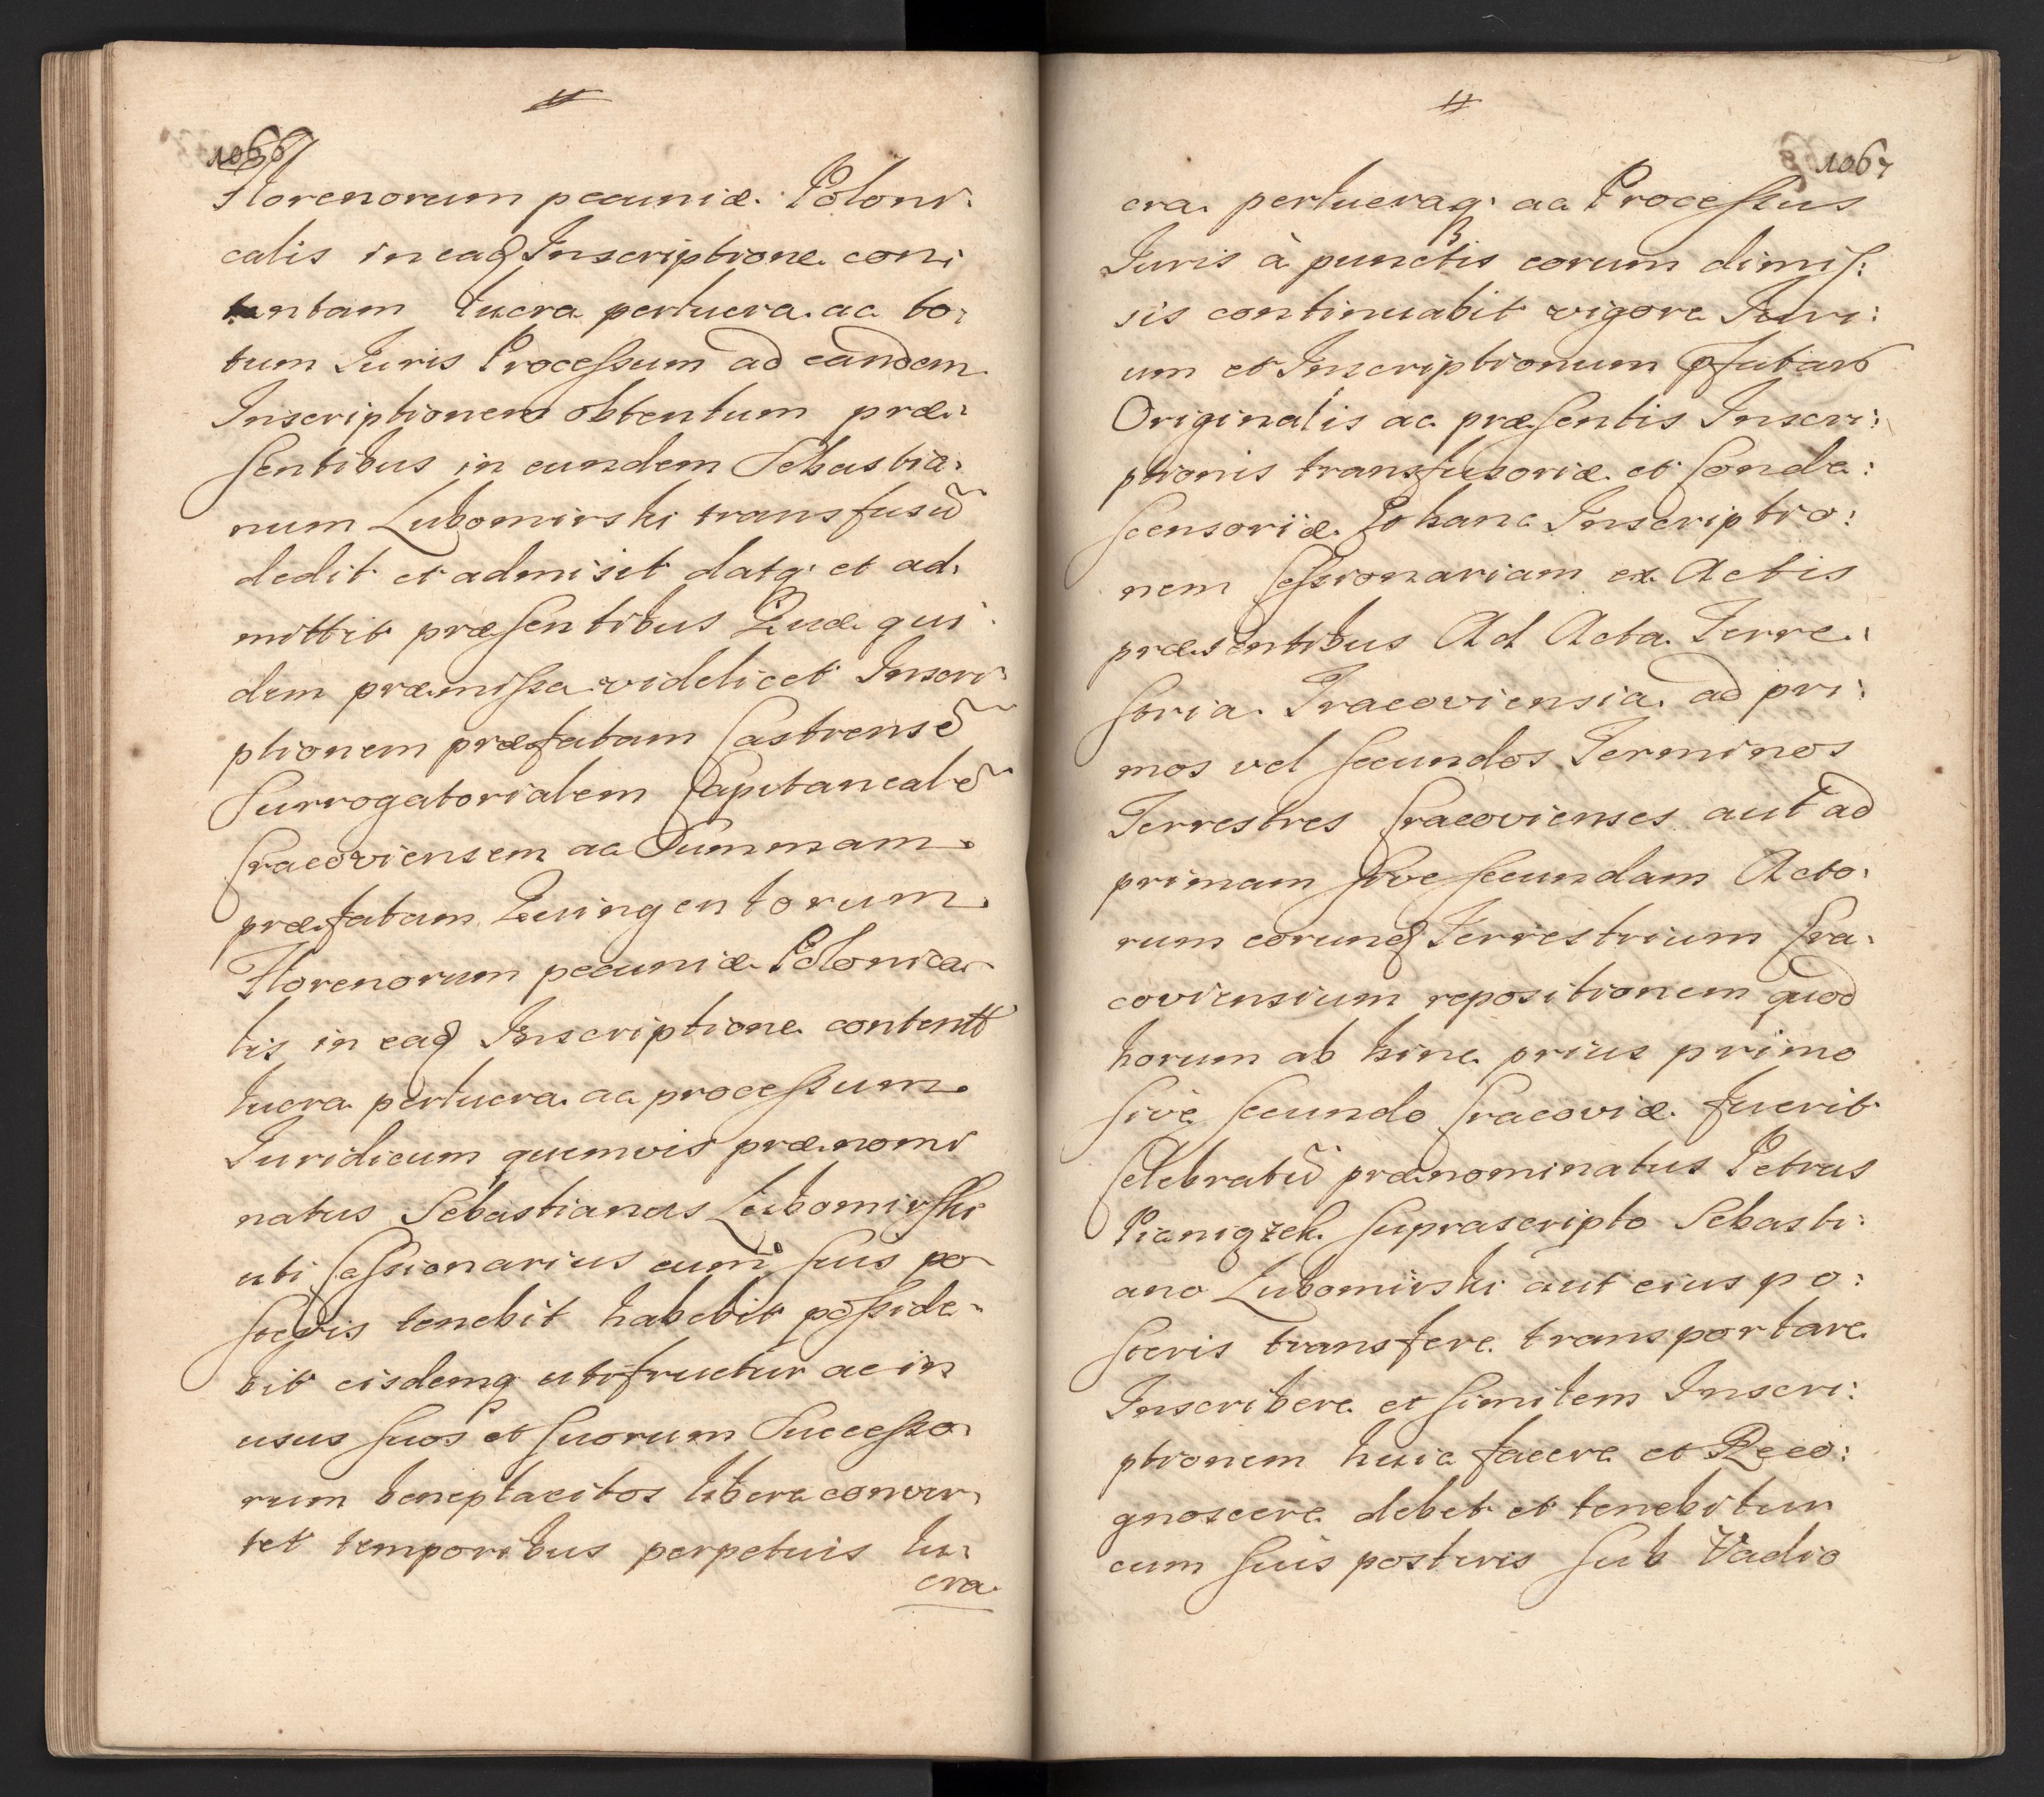 1066
Florenorum pecuniæ Poloni-
calis in eadq Inscriptione con-
tentam lucra perlucra ac to-
tum Iuris Processum ad eandem
Inscriptionem obtentum præ-
sentibus in eundem Sebastia-
num Lubomirski transfusũ
dedit et admisit datq et ad-
mittit præsentibus Quæ qui-
dem præmissa videlicet Inscri-
ptionem præfatam Castrensẽ
Surrogatorialem Capitanealẽ
Cracoviensem ac Summam
præfatam Quingentorum
Florenorum pecuniæ Polonica-
lis in eadq Inscriptione content
lucra perlucra ac processum
Iuridicum quemvis prænomi
natus Sebastianus Lubomirski
uti Cessionarius cum suis po-
steris tenebit habebit posside-
bit eisdemq utifruetur ac in
usus suos et suorum Successo-
rum beneplacitos libere conver-
tet temporibus perpetuis lu-
cra
1067
cra perlucraq ac Processus
Iuris à punctis eorum dimis:
sis continuabit vigore Iuri:
um et Inscriptionum
Originalis ac præsentis Inscri:
ptionis transfusoriæ et Conde:
scensoriæ hanc Inscriptio:
nem Cessionariam ex Actis
præsentibus Ad Acta Terre:
stria Cracoviensia ad pri:
mos vel secundos Terminos
Terrestres Cracovienses aut ad
primam sive secundam Acto-
rum eorundq Terrestrium Cra-
coviensium repositionem quod
horum ab hinc prius primo
sive secundo Cracoviæ fuerit
Celebratũ prænominatus Petrus
Pianiązek suprascripto Sebasti:
ano Lubomirski aut eius po:
steris transfere transportare
Inscribere et similem Inscri:
ptionem huic facere et Reco:
gnoscere debet et tenebitur
cum suis posteris sub Vadio